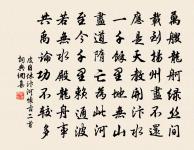 萬艘龍舸綠絲間
載到揚州盡不還
應是天教開汴水
一千餘里地無山
盡道隋亡為此河
至今千里賴通波
若無水殿龍舟事
共禹論功不較多
皮日休汴河懷古二首
詞典網集